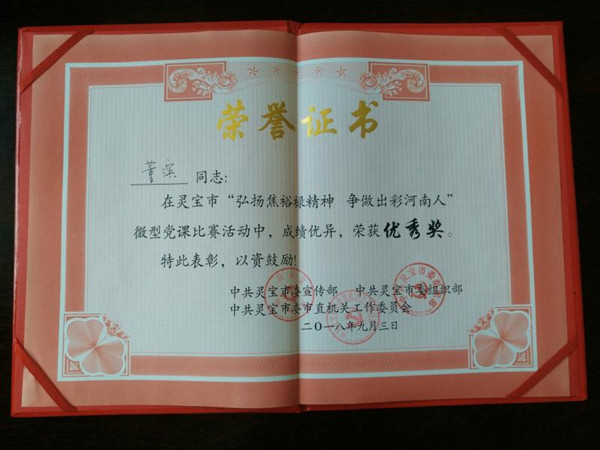 荣誉证书
董 同志:
在灵宝市“弘扬焦裕禄精神 争做出彩河南人”
微型党课比赛活动中,成绩优异,荣获优秀奖。
特此表彰,以资鼓励!
中共灵宝市委宣传部 中共灵宝市委组织部
中共灵宝市委市直机关工作委员会
二〇一八年九月三日